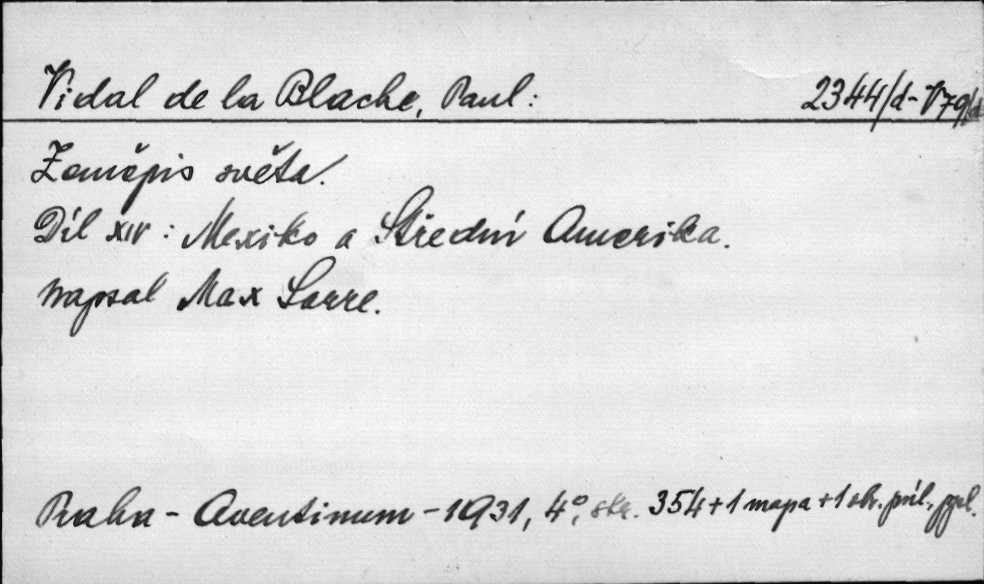 Vidal de la Blache, Paul: 2344/d-V79/
Zeměpis světa.
Díl XIV: Mexiko a Střední Amerika.
napsal Max Sorre.
Praha - Aventinum - 1931, 4°, str. 354 + 1 mapa + 1 obr. příl.,